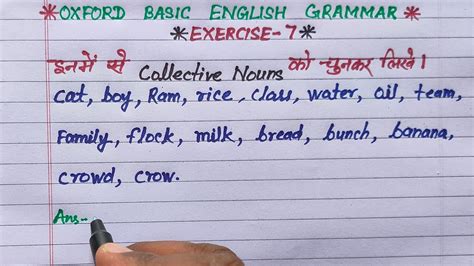 *OXFORD BASIC ENGLISH GRAMMAR*
*EXERCISE-7*
इनमें से Callective Nouns को चुनकर लिखें।
Cat, boy, Ram, rice, Class, water, oil, team,
Family, flock, milk, bread, bunch, banana,
crowd, crow.
Ans-